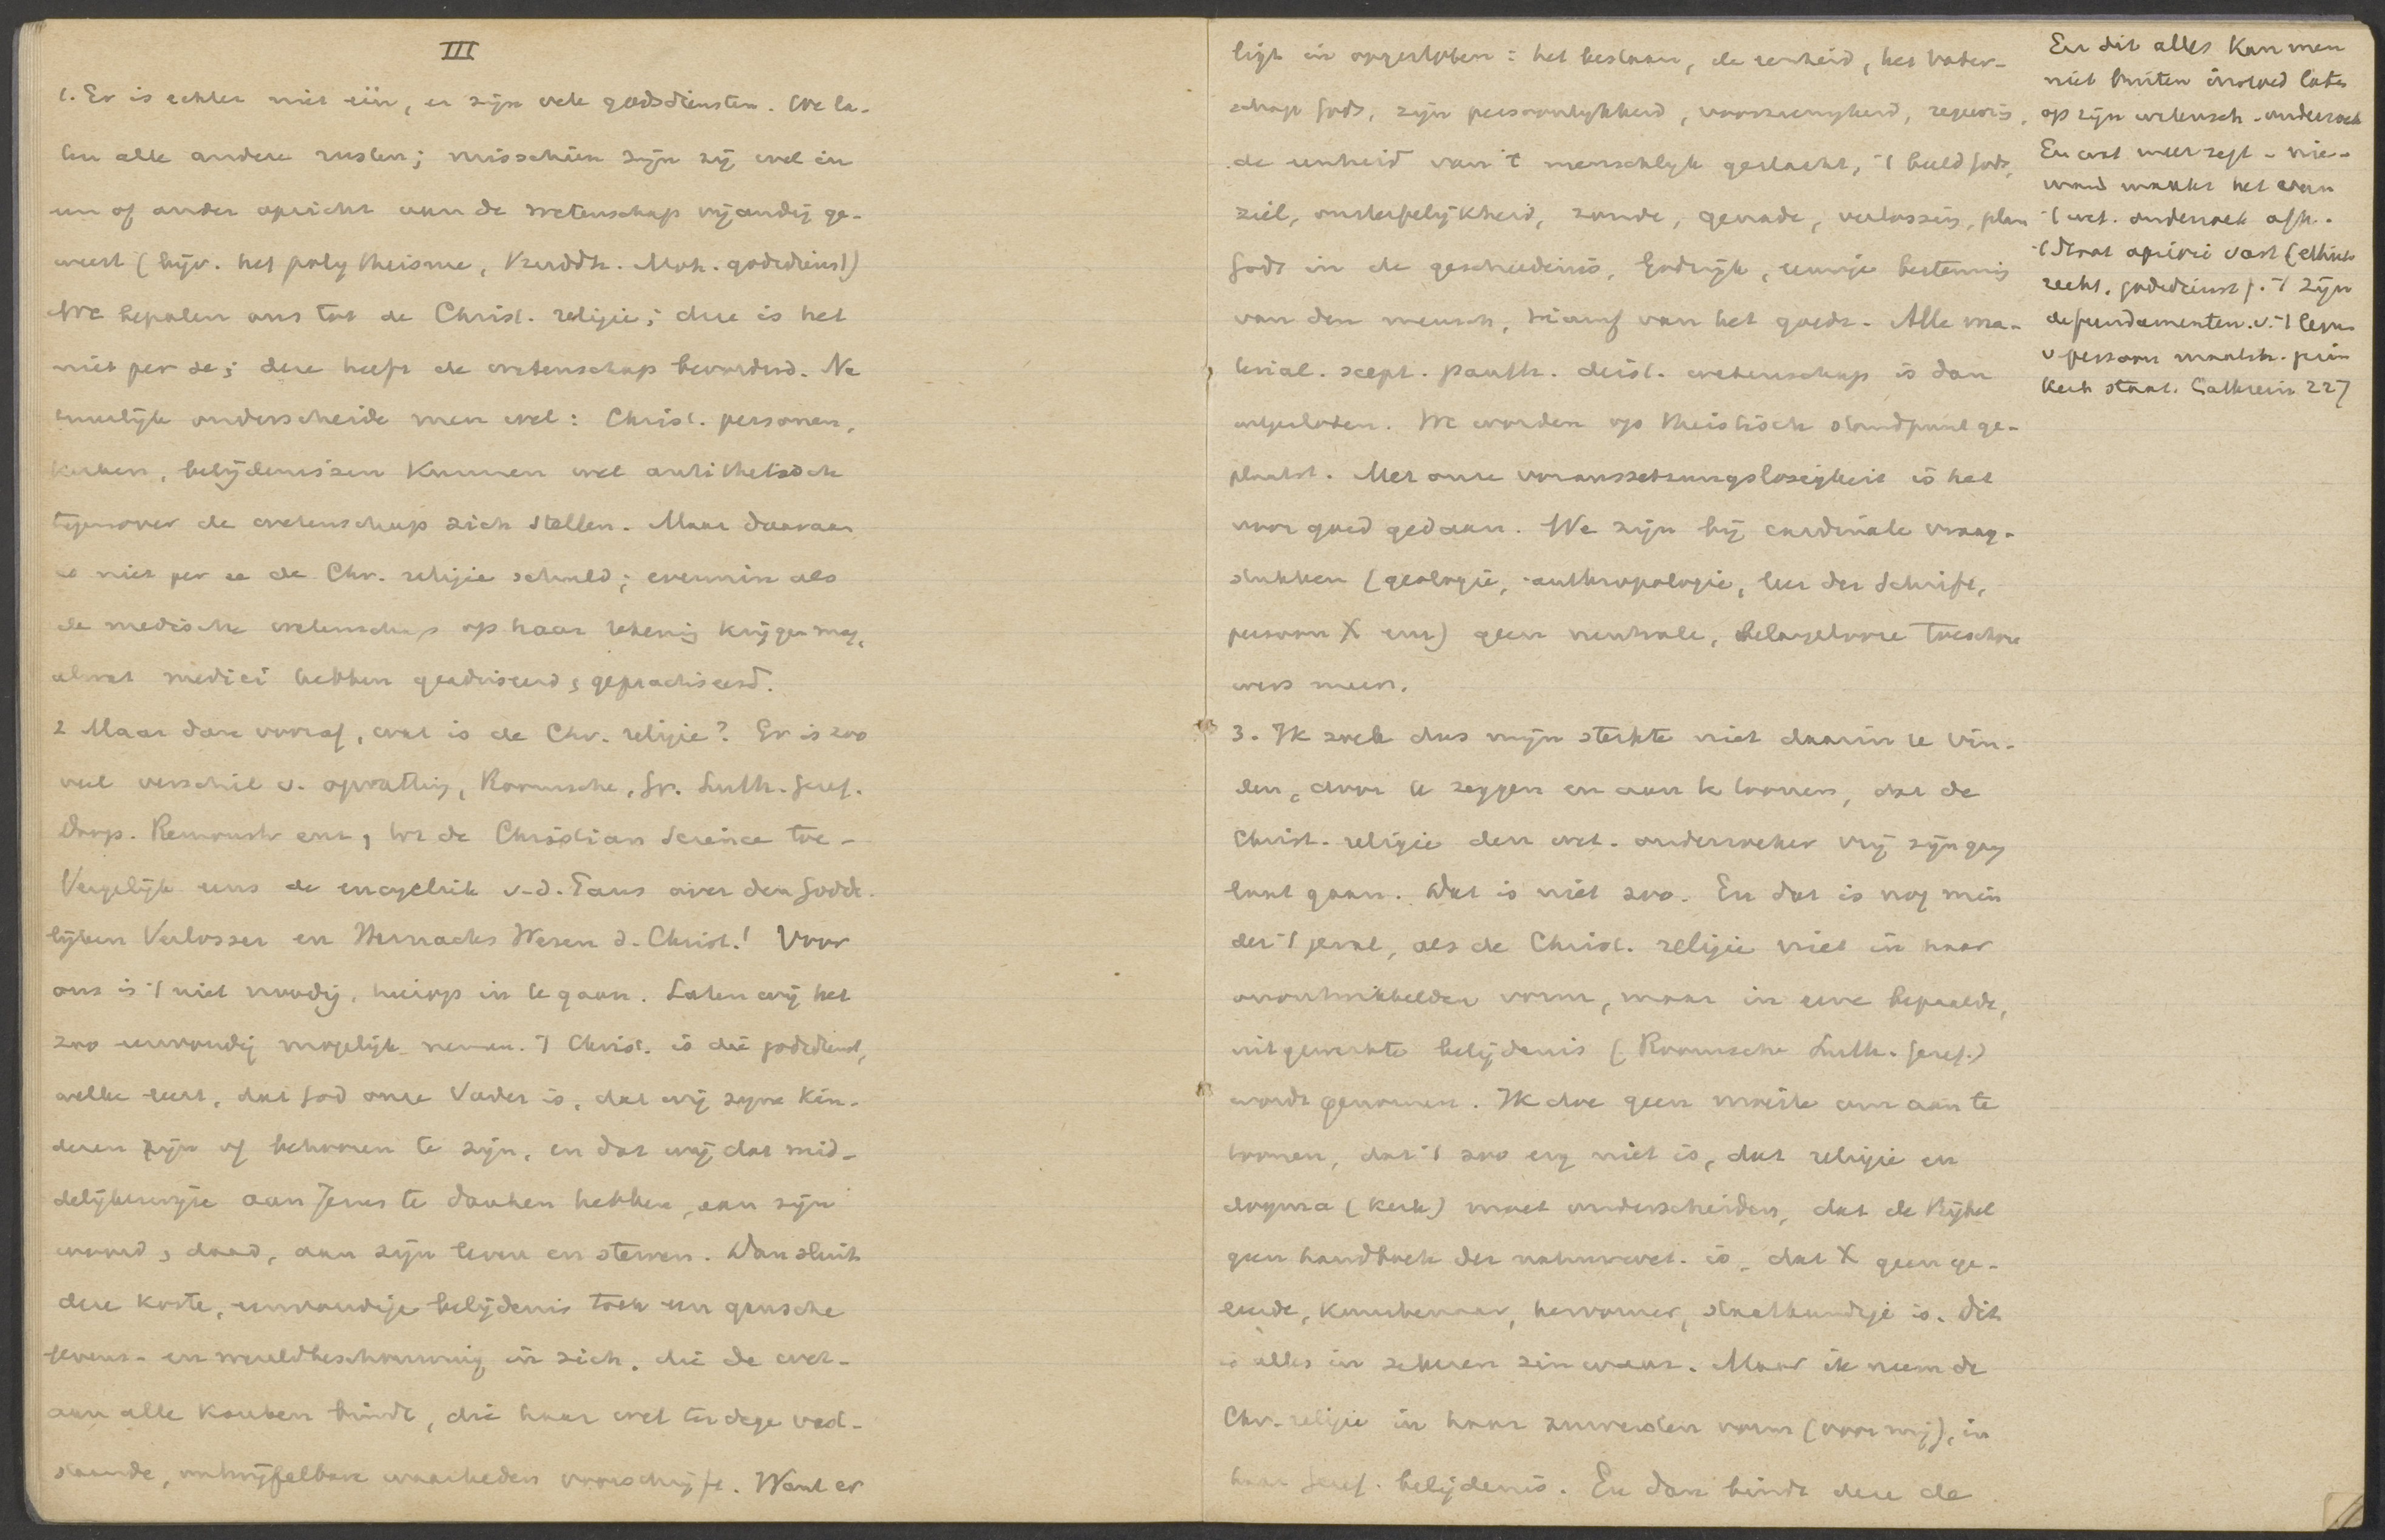 III
1. Er is echter niet één, er zijn vele godsdiensten. We la-
ten alle andere rusten; misschien zijn zij wel in
een of ander opzicht aan de wetenschap vijandig ge-
weest (bijv. het polytheisme, Buddh. Moh. godsdienst)
We bepalen ons tot de Christ. religie; deze is het
niet per se; deze heeft de wetenschap bevorderd. Na
tuurlijk onderscheide men wel: Christ. personen,
kerken, belijdenissen kunnen wel antithetisch
tegenover de wetenschap zich stellen. Maar daaraan
is niet per se de Chr. religie schuld; evenmin als
de medische wetenschap op haar rekening krijgen mag,
alwat medici hebben geadviseerd, gepractiseerd.
2 Maar dan vooraf, wat is de Chr. religie? Er is zoo
veel verschil v. opvatting, Roomsche, Gr. Luth. Geref.
Doops. Remonstr enz, tot de Christian Science toe-
Vergelijk eens de encycliek v.d. Paus over den Godde-
lijken Verlosser en Harnacks Wesen d. Christ.! Voor
ons is 't niet noodig, hierop in te gaan. Laten wij het
zoo eenvoudig mogelijk nemen. 't Christ. is die godsdienst,
welke leert, dat God onze Vader is, dat wij zijne kin-
deren zijn of behooren te zijn, en dat wij dat mid-
delijkerwijze aan Jezus te danken hebben, aan zijn
woord, daad, aan zijn leven en sterven. Dan sluit
deze korte, eenvoudige belijdenis toch een gansche
levens- en wereldbeschouwing in zich, die de wet.
aan alle kanten bindt, die haar wel ter dege vast-
staande, ontwijfelbare waarheden voorschrijft. Want er
ligt in opgesloten: het bestaan, de eenheid, het Vader-
schap Gods, zijn persoonlijkheid, voorzienigheid, regeering,
de eenheid van 't menschlijk geslacht, 't beeld Gods,
ziel, onsterfelijkheid, zonde, genade, verlossing, plan
Gods in de geschiedenis, Godsrijk, eeuwige bestemming
van den mensch, triumf van het goede. Alle ma-
terial. scept. panth. deist. wetenschap is dan
uitgesloten. We worden op theistisch standpunt ge-
plaatst. Met onze voraussetzungslosigkeit is het
voor goed gedaan. We zijn bij cardinale vraag-
stukken (geologie, anthropologie, leer der Schrift,
persoon X enz) geen neutrale, belangelooze toeschou
wers meer.
3. Ik zoek dus mijn sterkte niet daarin te vin-
den, door te zeggen en aan te toonen, dat de
Christ. religie den wet. onderzoeker vrij zijn gang
laat gaan. Dat is niet zoo. En dat is nog min
der 't geval, als de Christ. religie niet in haar
onontwikkelden vorm, maar in eene bepaalde,
uitgewerkte belijdenis (Roomsche Luth. Geref.)
wordt genomen. Ik doe geen moeite om aan te
toonen, dat 't zoo erg niet is, dat religie en
dogma (kerk) moet onderscheiden, dat de Bijbel
geen handboek der natuurwet. is, dat X geen ge-
leerde, kunstenaar, hervormer, staatkundige is. Dit
is alles in zekeren zin waar. Maar ik neem de
Chr. religie in haar zuiversten vorm (voor mij), in
haar Geref. belijdenis. En dan bindt deze de
En dit alles kan men
niet buiten invloed laten
op zijn wetensch. onderzoek
En wat meer zegt - nie-
mand maakt het van
't wet. onderzoek afh.
't staat apriori vast (ethiek
recht, godsdienst). 't Zijn
de fundamenten v. 't leven
v persoon maatsch. gezin
kerk staat. Cathrein 227